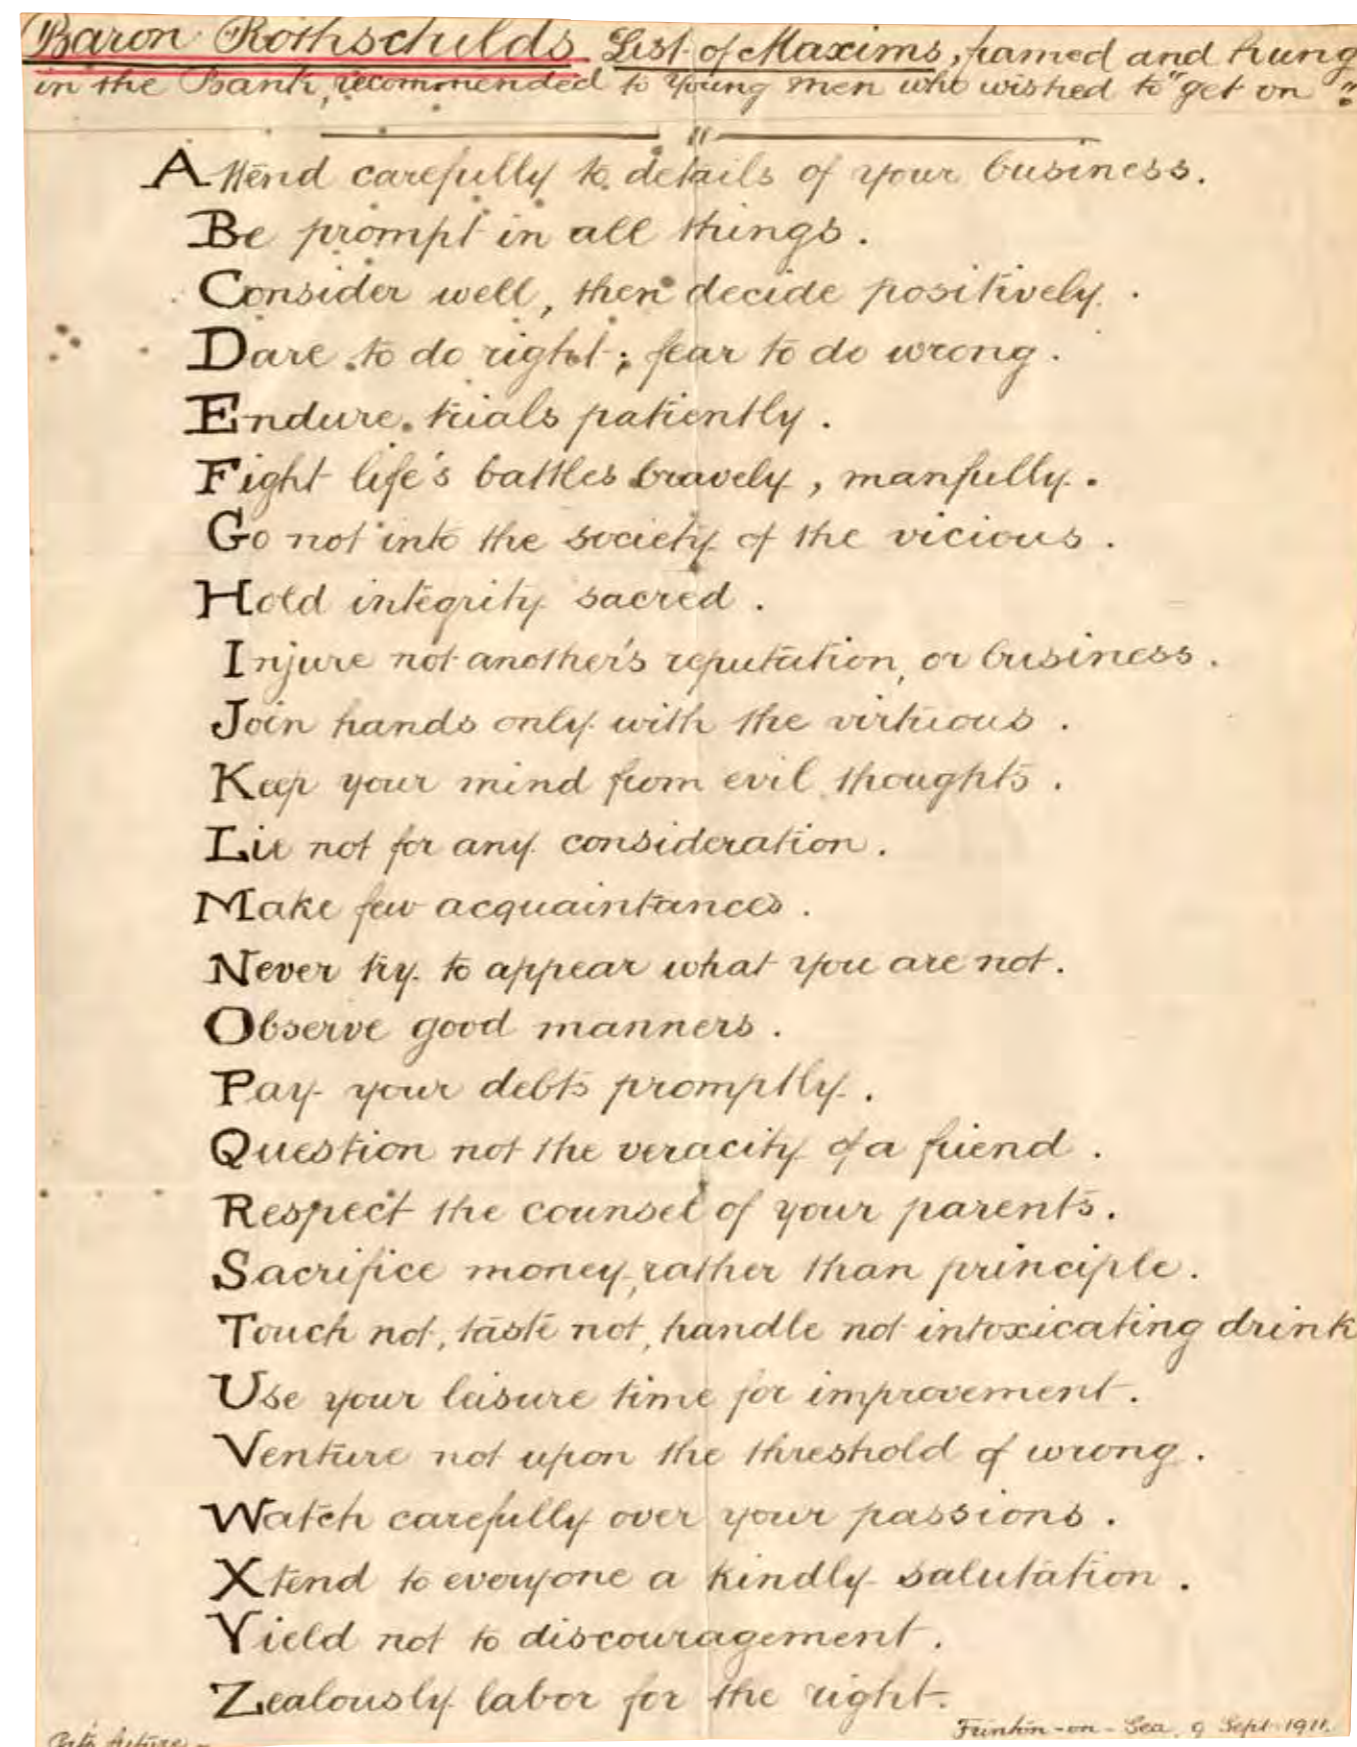 Baron Rothschilds List of Maxims, framed and hung
in the Bank, recommended to Young Men who wished to "get on".
Attend carefully to details of your business.
Be prompt in all things.
Consider well, then decide positively.
Dare to do right; fear to do wrong.
Endure trials patiently.
Fight life's battles bravely, manfully.
Go not into the society of the vicious.
Hold integrity sacred.
Injure not another's reputation, or business.
Join hands only with the virtuous.
Keep your mind from evil thoughts.
Lie not for any consideration.
Make few acquaintances.
Never try to appear what you are not.
Observe good manners.
Pay your debts promptly.
Question not the veracity of a friend.
Respect the counsel of your parents.
Sacrifice money, rather than principle.
Touch not, taste not, handle not intoxicating drink
Use your leisure time for improvement.
Venture not upon the threshold of wrong.
Watch carefully over your passions.
Xtend to everyone a kindly salutation.
Yield not to discouragement.
Zealously labor for the right.
Frinton-on-Sea, 9 Sept 1911.